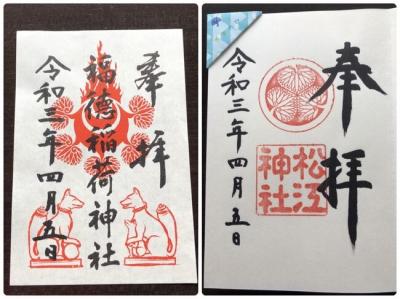 奉拝
福徳稲荷神社
令和三年四月五日
奉拝
松江
神社
令和三年四月五日